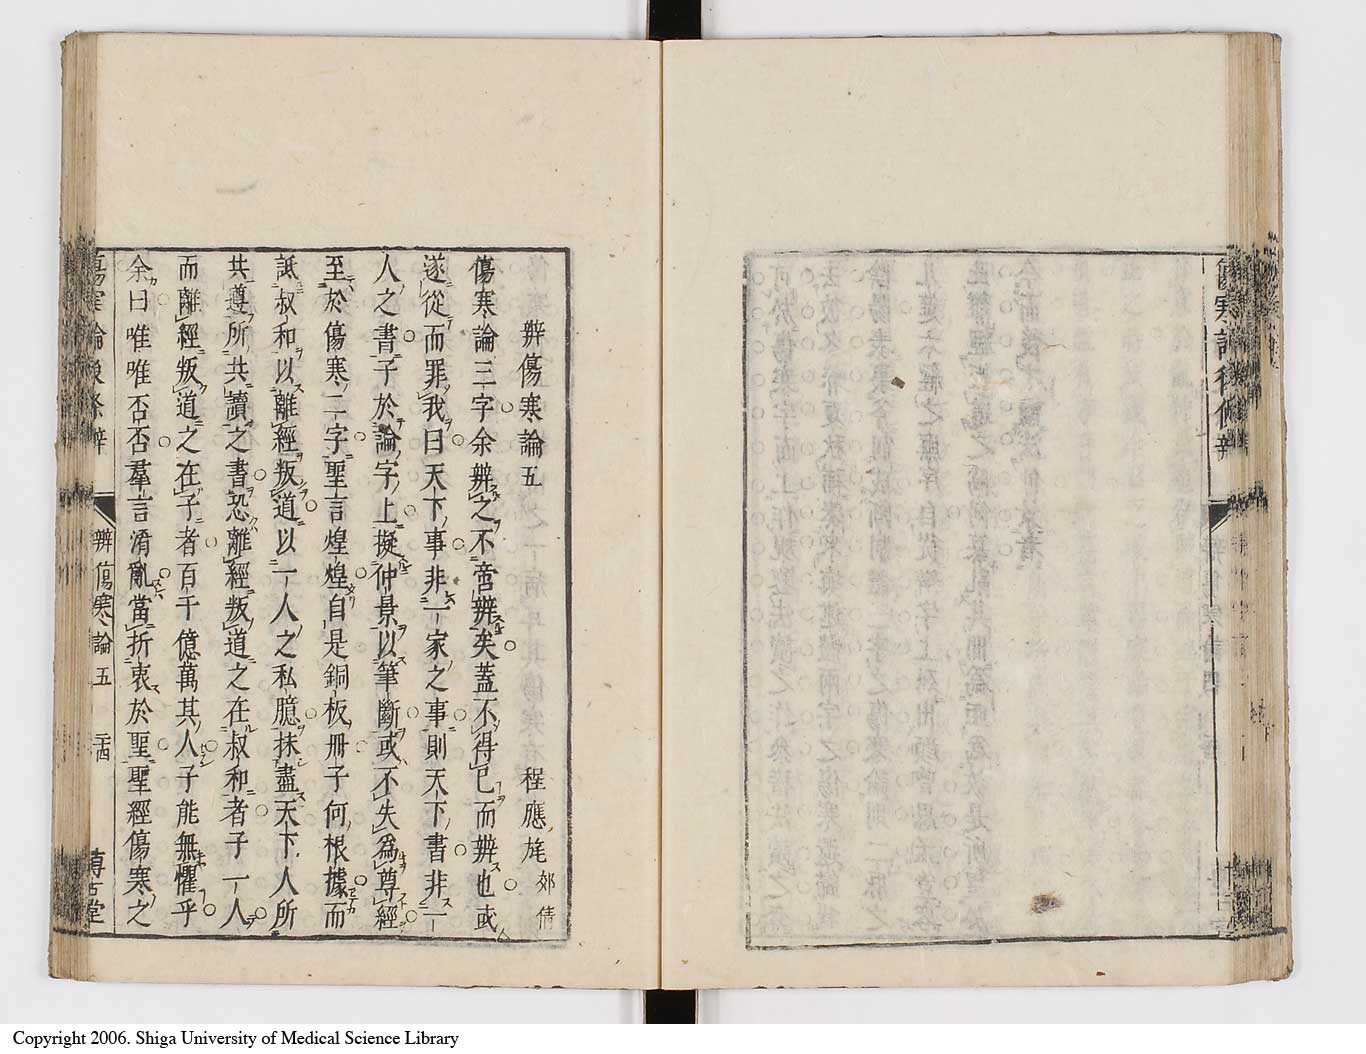 傷寒論後條辨
辨傷寒論五
程應旄郊倩
傷寒論三字余辨之不啻辨矣蓋不得已而辨也或
遂從而罪我曰天下事非一家之事則天下書非一
人之書子於論字上擬仲景以筆斷或不失爲尊經
至於傷寒二字聖言煌煌自是銅板冊子何根據而
詆叔和以離經叛道以一人之私臆抹盡天下人所
共遵所共讀之書恐離經叛道之在叔和者子一人
而離經叛道之在子者百千億萬其人子能無懼乎
余曰唯唯否否羣言淆亂當折衷於聖聖經傷寒之
傷寒論後條辨
辨傷寒論五
二十四
博古堂
Copyright 2006. Shiga University of Medical Science Library